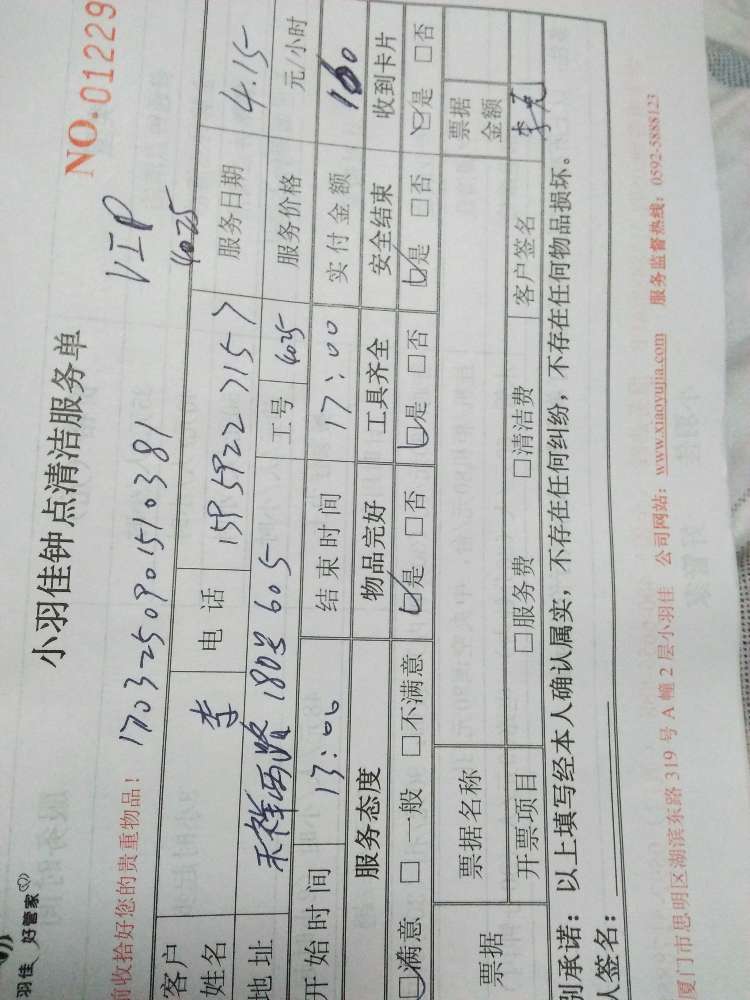 羽佳 好管家
小羽佳钟点清洁服务单
NO.01229
VIP
前收拾好您的贵重物品！ 1703250901510381 4025
客户姓名 李 电话 15959227157 服务日期 4.15
地址 天祥西路180号605 工号 4025 服务价格 元/小时
开始时间 13:00 结束时间 17:00 实付金额 160
服务态度 物品完好 工具齐全 安全结束 收到卡片
□满意 □一般 □不满意 □是 □否 □是 □否 □是 □否 □是 □否
票据 票据名称 票据金额
开票项目 □服务费 □清洁费 客户签名 李
别承诺：以上填写经本人确认属实，不存在任何纠纷，不存在任何物品损坏。
人签名：
厦门市思明区湖滨东路 319 号 A 幢 2 层小羽佳 公司网站：www.xiaoyujia.com 服务监督热线：0592-5888123